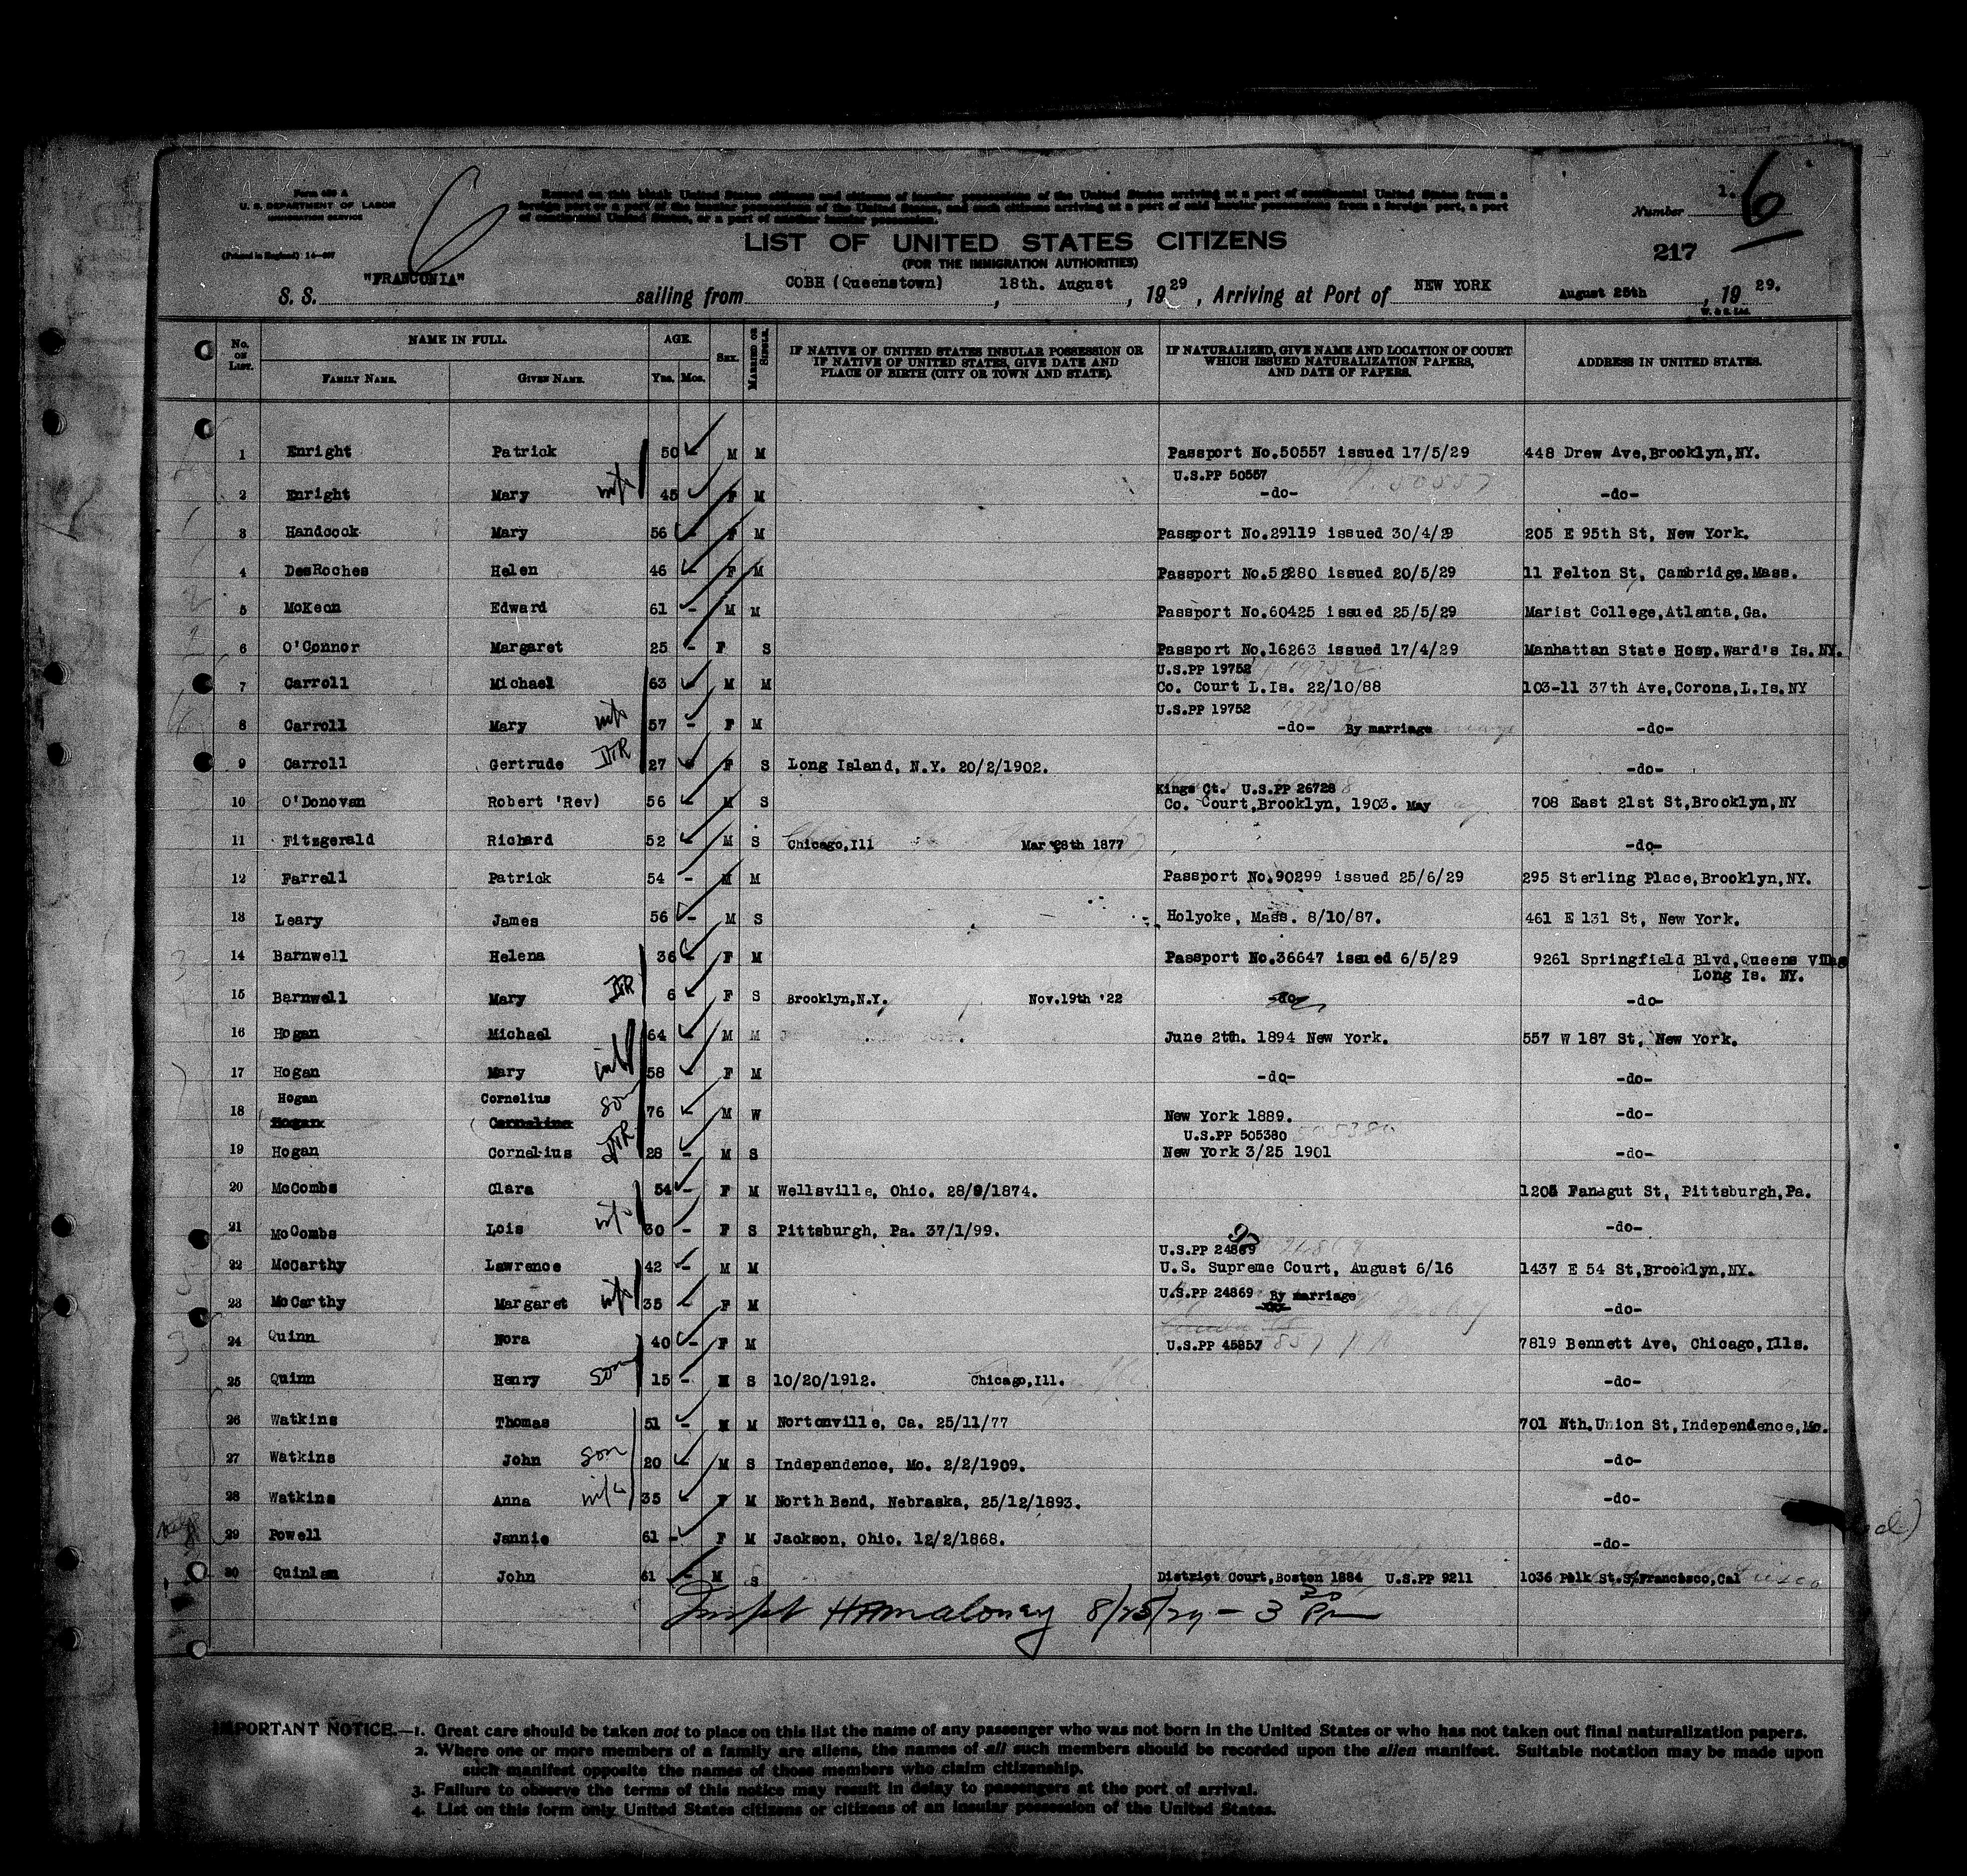 Form 630 A
U. S. DEPARTMENT OF LABOR
IMMIGRATION SERVICE
(Printed in England) 14-887
Record on this blank United States citizens and citizens of insular possessions of the United States arriving at a port of continental United States from a
foreign port or a port of the insular possessions of the United States, and such citizens arriving at a port of said insular possessions from a foreign port, a port
of continental United States, or a port of another insular possession.
1. 6
Number
LIST OF UNITED STATES CITIZENS
(FOR THE IMMIGRATION AUTHORITIES)
217
S. S. "FRANCONIA" sailing from COBH (Queenstown), 18th. August, 1929, Arriving at Port of NEW YORK August 25th, 1929.
W. & S. Ltd.
No. ON LIST. NAME IN FULL. AGE. SEX. MARRIED OR SINGLE. IF NATIVE OF UNITED STATES INSULAR POSSESSION OR IF NATIVE OF UNITED STATES, GIVE DATE AND PLACE OF BIRTH (CITY OR TOWN AND STATE). IF NATURALIZED, GIVE NAME AND LOCATION OF COURT WHICH ISSUED NATURALIZATION PAPERS, AND DATE OF PAPERS. ADDRESS IN UNITED STATES.
FAMILY NAME. GIVEN NAME. Yrs. Mos.
1 Enright Patrick 50 M M Passport No.50557 issued 17/5/29 448 Drew Ave,Brooklyn,NY.
U.S.PP 50557
2 Enright Mary wife 45 F M -do- -do-
3 Handcock Mary 56 - F M Passport No.29119 issued 30/4/29 205 E 95th St, New York.
4 DesRoches Helen 46 - F M Passport No.52280 issued 20/5/29 11 Felton St, Cambridge.Mass.
5 McKeon Edward 61 - M M Passport No.60425 issued 25/5/29 Marist College,Atlanta,Ga.
6 O'Connor Margaret 25 - F S Passport No.16263 issued 17/4/29 Manhattan State Hosp.Ward's Is.NY.
U.S.PP 19752
7 Carroll Michael 63 - M M Co. Court L.Is. 22/10/88 103-11 37th Ave,Corona,L.Is.NY
U.S.PP 19752
8 Carroll Mary wife 57 - F M -do- By marriage -do-
9 Carroll Gertrude DTR 27 F S Long Island, N.Y. 20/2/1902. -do-
Kings Ct. U.S.PP 26728
10 O'Donovan Robert 'Rev) 56 - M S Co. Court,Brooklyn, 1903. May 708 East 21st St,Brooklyn,NY
11 Fitzgerald Richard 52 - M S Chicago,Ill Mar 28th 1877 -do-
12 Farrell Patrick 54 - M M Passport No.90299 issued 25/6/29 295 Sterling Place,Brooklyn,NY.
13 Leary James 56 - M S Holyoke, Mass. 8/10/87. 461 E 131 St, New York.
14 Barnwell Helena 36 - F M Passport No.36647 issued 6/5/29 9261 Springfield Blvd,Queens Vilag
Long Is. NY.
15 Barnwell Mary DTR 6 F S Brooklyn,N.Y. Nov.19th '22 -do- -do-
16 Hogan Michael 64 - M M June 2th. 1894 New York. 557 W 187 St, New York.
17 Hogan Mary wife 58 F M -do- -do-
Hogan Cornelius son
18 Hogan Cornelius 76 M W New York 1889. -do-
U.S.PP 505380
19 Hogan Cornelius DTR 28 - M S New York 3/25 1901 -do-
20 McCombs Clara 54 - F M Wellsville, Ohio. 28/9/1874. 1205 Fanagut St, Pittsburgh,Pa.
21 McCombs Lois 30 - F S Pittsburgh, Pa. 37/1/99. -do-
U.S.PP 24869
22 McCarthy Lawrence 42 - M M U.S. Supreme Court, August 6/16 1437 E 54 St,Brooklyn,NY.
U.S.PP 24869 By marriage
23 McCarthy Margaret wife 35 - F M -do-
24 Quinn Nora 40 - F M U.S.PP 45857 7819 Bennett Ave, Chicago,Ills.
25 Quinn Henry son 15 - M S 10/20/1912. Chicago,Ill. -do-
26 Watkins Thomas 51 - M M Nortonville, Ca. 25/11/77 701 Nth.Union St,Independence,Mo.
27 Watkins John son 20 - M S Independence, Mo. 2/2/1909. -do-
28 Watkins Anna wife 35 F M North Bend, Nebraska, 25/12/1893. -do-
29 Powell Jannie 61 - F M Jackson, Ohio. 12/2/1868. -do-
30 Quinlan John 61 - M S District Court,Boston 1884 U.S.PP 9211 1036 Polk St.S/Francisco,Cal
Inspt HAMaloney 8/25/29 - 3 30 Pm
IMPORTANT NOTICE.—1. Great care should be taken not to place on this list the name of any passenger who was not born in the United States or who has not taken out final naturalization papers.
2. Where one or more members of a family are aliens, the names of all such members should be recorded upon the alien manifest. Suitable notation may be made upon
such manifest opposite the names of those members who claim citizenship.
3. Failure to observe the terms of this notice may result in delay to passengers at the port of arrival.
4. List on this form only United States citizens or citizens of an insular possession of the United States.